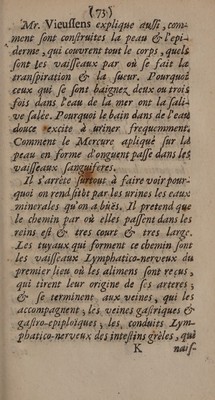 (73)
Mr. Vieussens explique aussi, com-
ment sont construites la peau & l'epi-
derme, qui couvrent tout le corps, quels
sont les vaisseaux par où se fait la
transpiration & la sueur. Pourquoi
ceux qui se sont baignez deux ou trois
fois dans l'eau de la mer ont la sali-
ve salée. Pourquoi le bain dans de l'eau
douce excite à uriner frequemment.
Comment le Mercure apliqué sur la
peau en forme d'onguent passe dans les
vaisseaux sanguiferes.
Il s'arrête surtout à faire voir pour-
quoi on rend sitôt par les urines les eaux
minerales qu'on a bües. Il pretend que
le chemin par où elles passent dans les
reins est & tres court & tres large.
Les tuyaux qui forment ce chemin sont
les vaisseaux Lymphatico-nerveux du
premier lieu où les alimens sont reçus,
qui tirent leur origine de ses arteres;
& se terminent aux veines, qui les
accompagnent; les veines gastriques &
gastro-epiploïques; les conduits Lym-
phatico-nerveux des intestins grêles, qui
K nais-